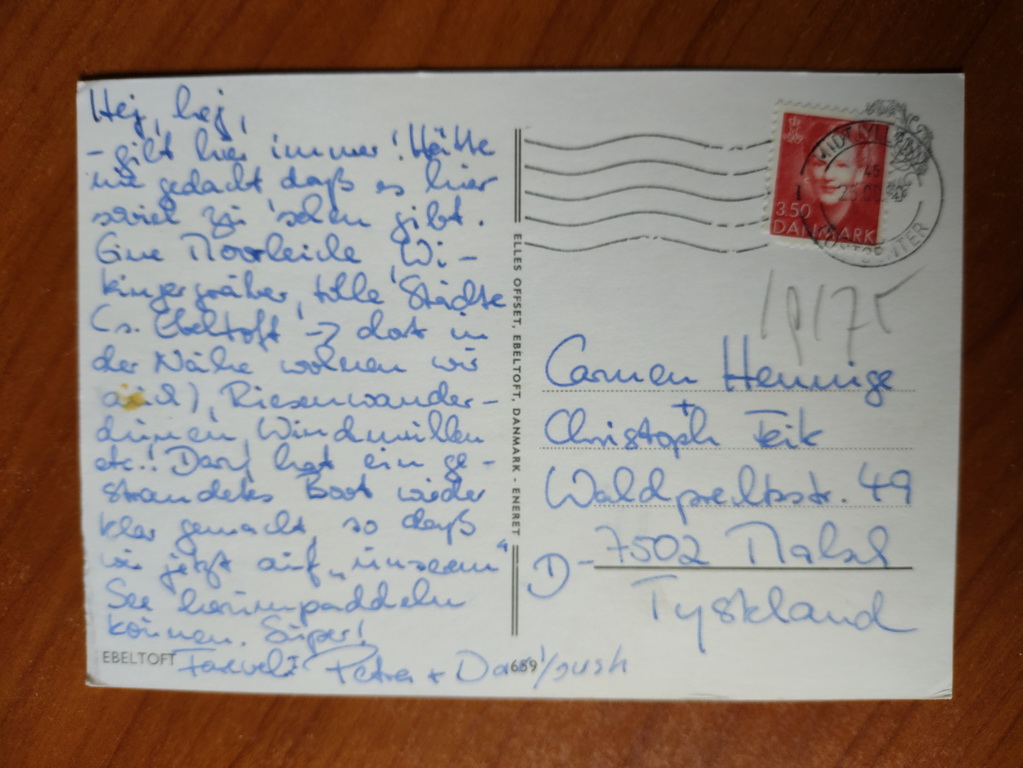 Hej, hej,
- gilt hier immer! Hätte
nie gedacht daß es hier
soviel zu sehen gibt.
Eine Moorleiche, Wi-
kingergräber, tolle Städte
(s. Ebeltoft -> dort in
der Nähe wohnen wir
auch), Riesenwander-
dünen, Windmühlen
etc.! Dary hat ein ge-
strandetes Boot wieder
klar gemacht, so daß
wir jetzt auf „unserem"
See herumpaddeln
können. Super!
Farvel: Petra + Daryush
EBELTOFT
689
ELLES OFFSET, EBELTOFT, DANMARK - ENERET
3.50
DANMARK
MIDTJYLLANDS
POSTCENTER
Carmen Hennige
+
Christoph Feik
Waldprechtsstr. 49
D-7502 Malsch
Tyskland